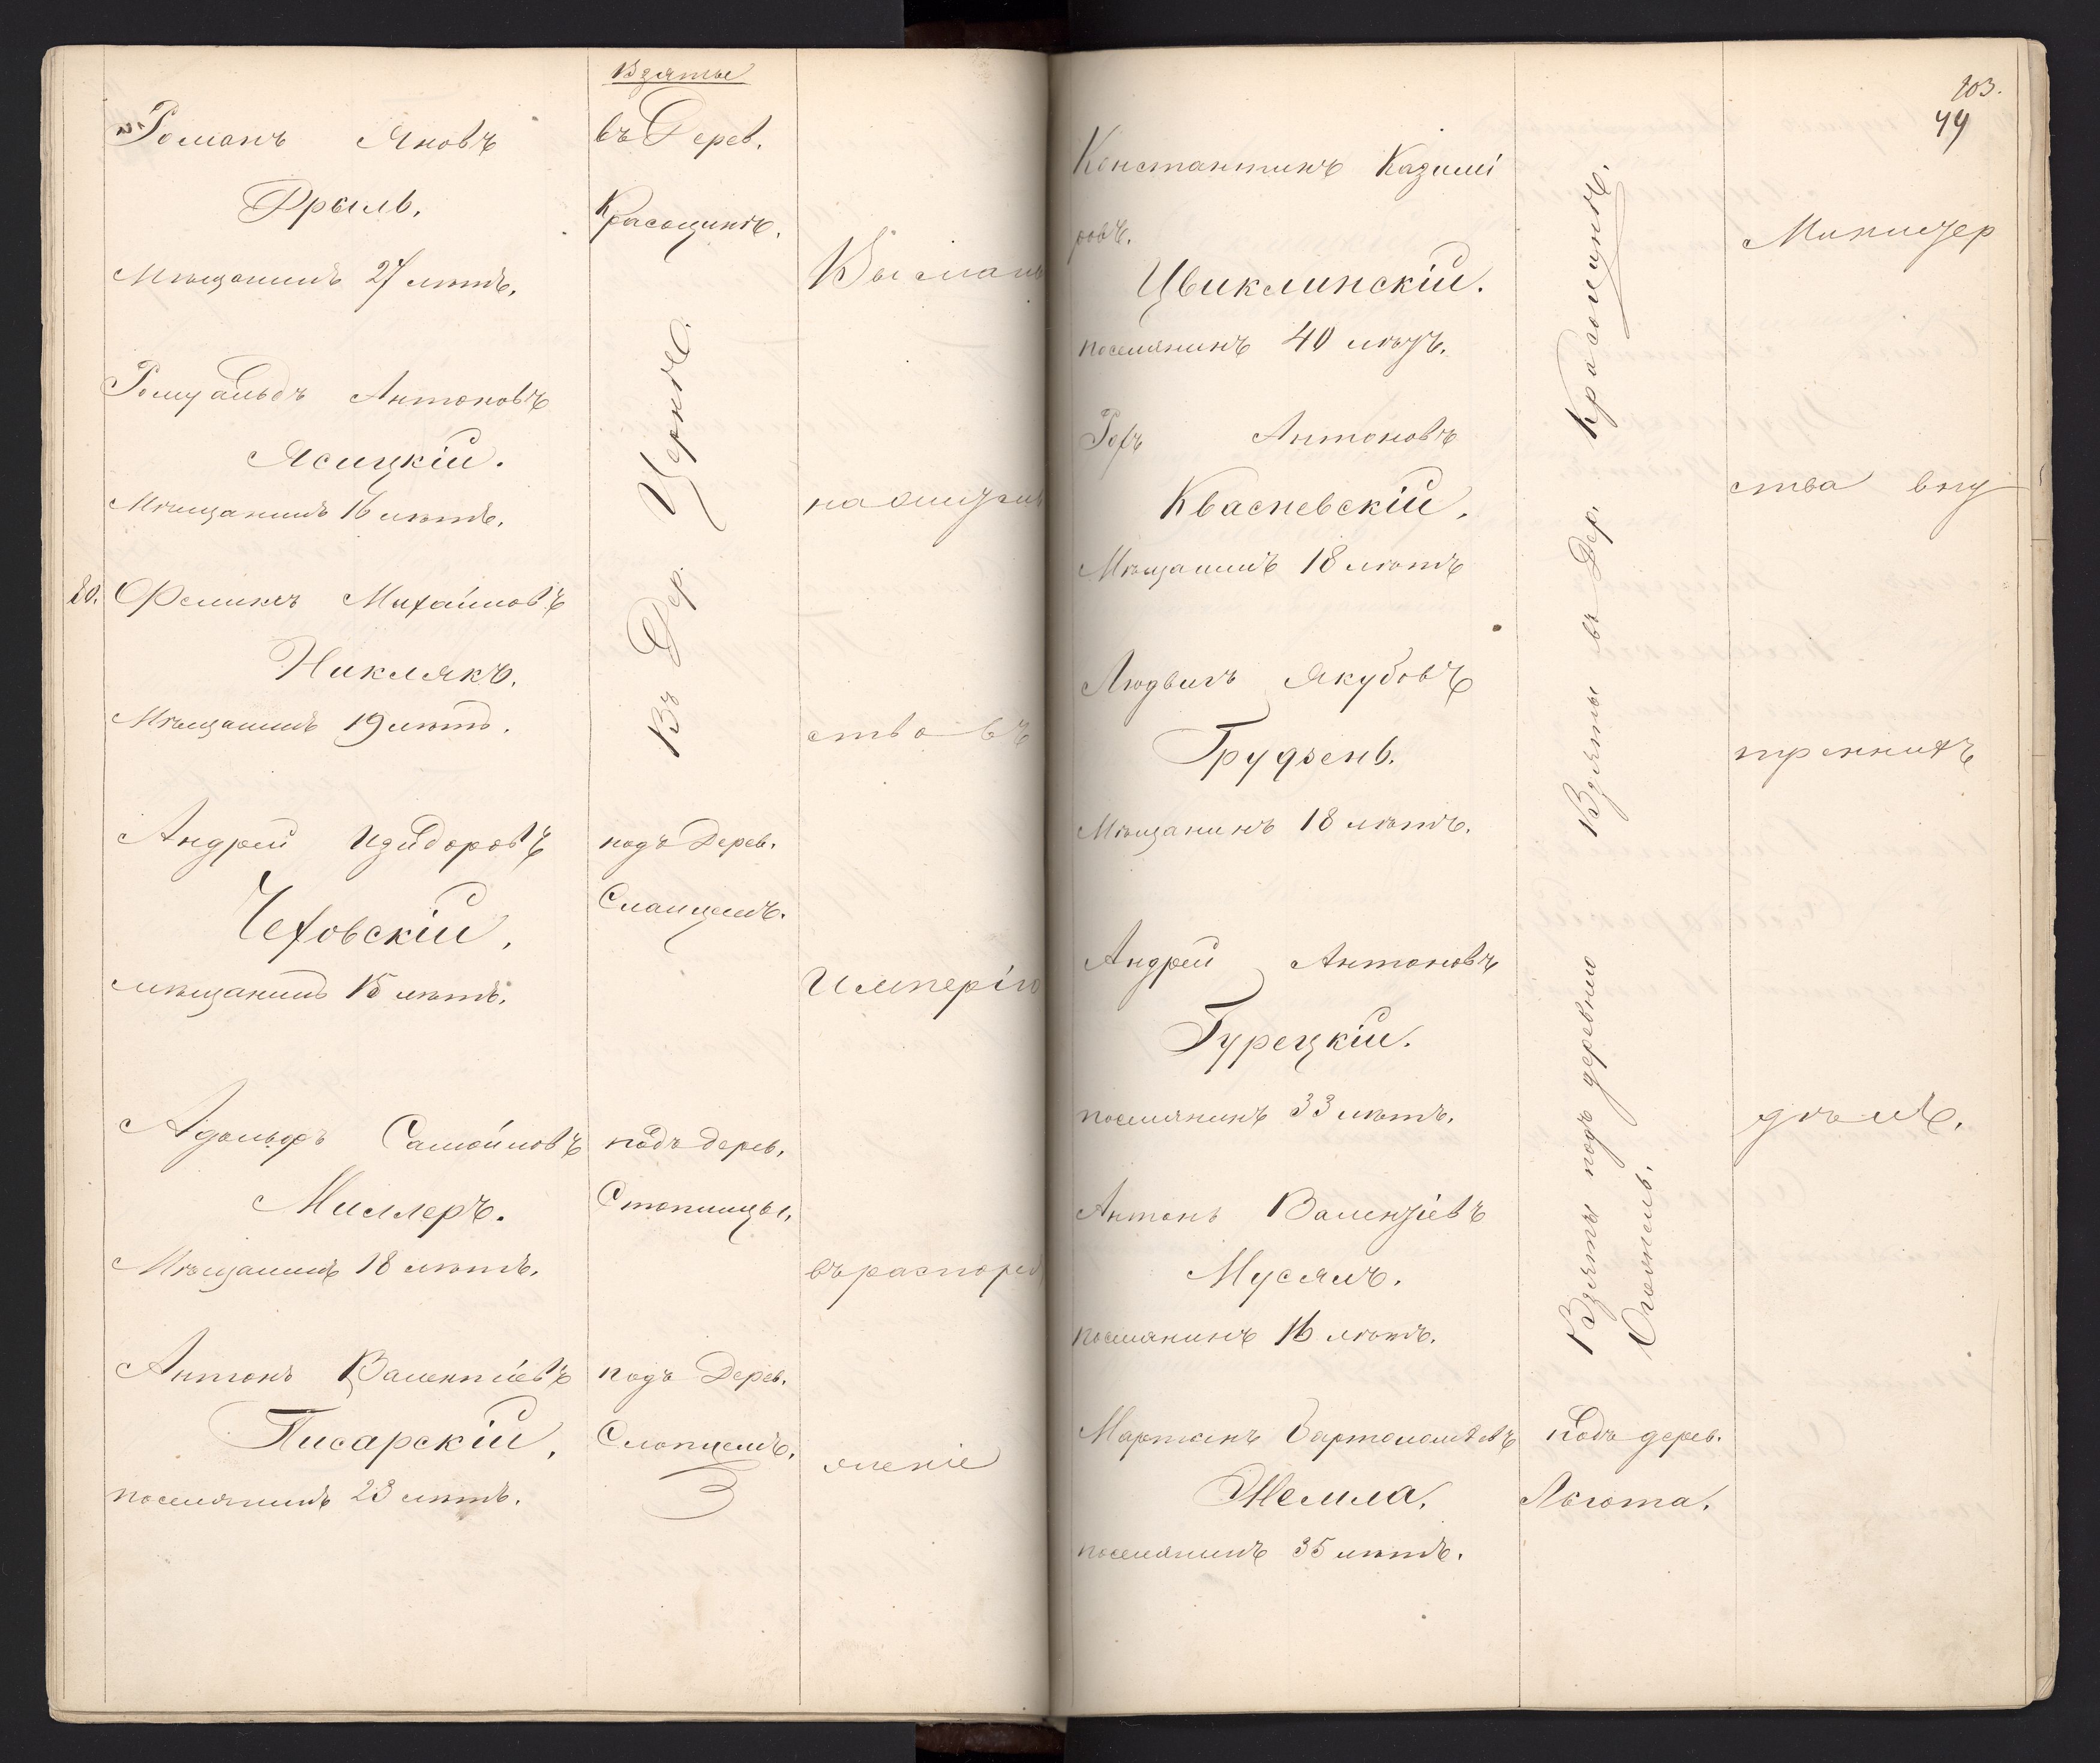 Взяты
Романъ Яновъ
Фрыль,
Мѣщанинъ 27 лѣтъ,
въ Дерев.
Красоцинѣ,
Ромуальдъ Антоновъ
Ясицкій.
Мѣщанинъ 16 лѣтъ,
20. Феликсъ Михайловъ
Никлякъ,
Мѣщанинъ 19 лѣтъ.
Въ Дер.
Андрей Изидоровъ
Чеховскій,
мѣщанинъ 15 лѣтъ,
подъ Дерев.
Адольфъ Самойловъ
Миллеръ.
Мѣщанинъ 18 лѣтъ,
подъ дерев,
Стопницы,
Антонъ Валентіевъ
Писарскій,
поселянинъ 23 лѣтъ.
подъ Дерев.
Слопцемъ,
Высланъ
на жительст
ство въ
Имперію
въ распоряж
еніе
103.
44
Константинъ Казимі
ровъ.
Цвиклинскій.
поселянинъ 40 лѣтъ.
Рохъ Антоновъ
Квасневскій,
Мѣщанинъ 18 лѣтъ
Людвигъ Якубовъ
Грудзень.
Мѣщанинъ 18 лѣтъ.
Взяты въ Дер. Красоцинѣ.
Андрей Антоновъ
Гурецкій.
поселянинъ 33 лѣтъ.
Антонъ Валентіевъ
Мусялъ.
поселянинъ 16 лѣтъ.
Взяты подъ деревнею
Мартинъ Бартоломѣевъ
Жемла,
поселянинъ 35 лѣтъ.
подъ дерев.
Лгота.
Министер
ства вну
треннихъ
дѣлъ,